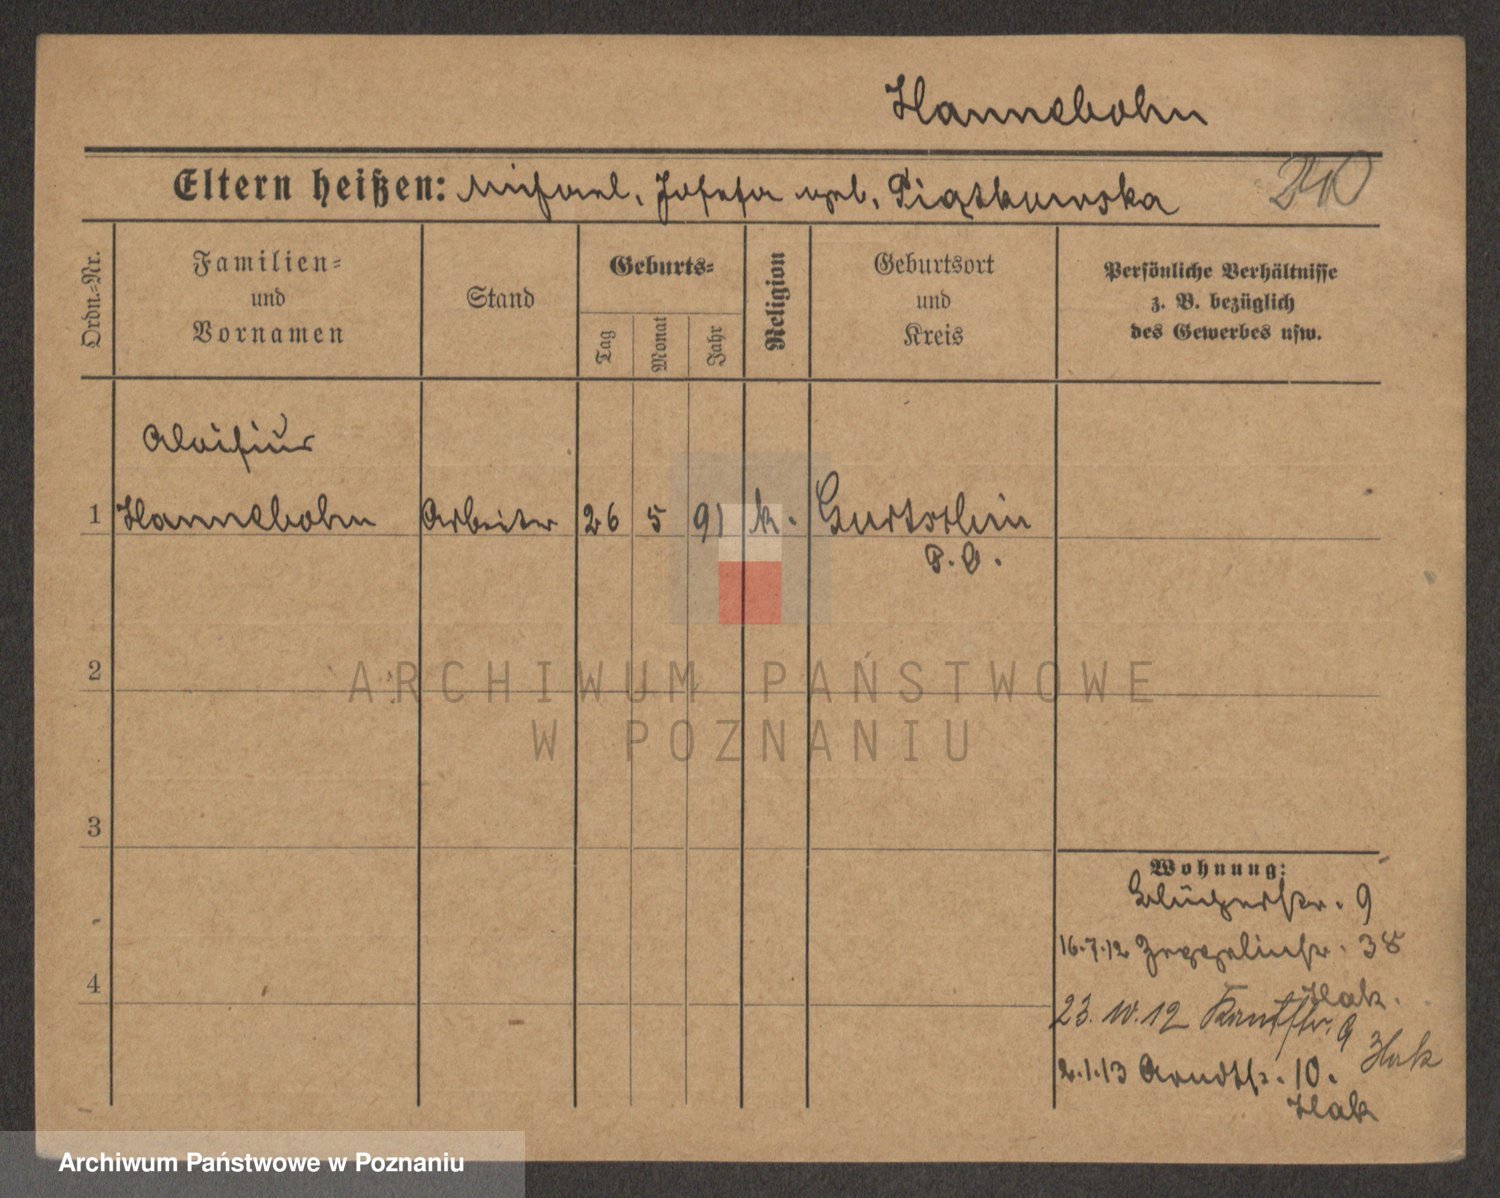 Hannebohn
Eltern heißen: Michael, Josefa geb. Piątkowska
Ordn.-Nr.
Familien-
und
Vornamen
Stand
Geburts-
Tag
Monat
Jahr
Religion
Geburtsort
und
Kreis
Persönliche Verhältnisse
z. B. bezüglich
des Gewerbes usw.
Aloisius
1 Hannebohn Arbeiter 26 5 91 k.
P. O.
2
ARCHIWUM PAŃSTWOWE
W POZNANIU
3
4
Wohnung:
Blücherstr. 9
16.7.12 Zeppelinstr. 38
Hak.
23.10.12 Kantstr. 9
Hak
2.1.13 Arndtstr. 10.
Hak
Archiwum Państwowe w Poznaniu